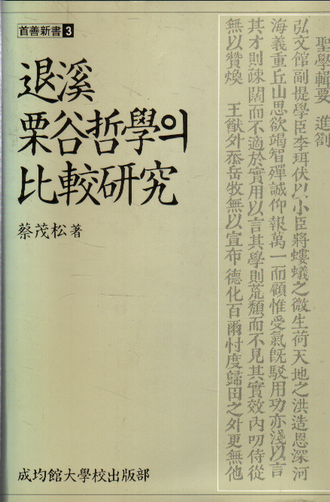 首善新書 3
退溪
栗谷哲學의
比較研究
蔡茂松 著
成均館大學校出版部
聖學輯要 進劄
弘文館副提學臣李珥伏以小臣將螻蟻之微生荷天地之洪造恩深河
海義重丘山思欲竭智殫誠仰報萬一而顧惟受氣旣駁用功亦淺以言
其才則疎闊而不適於實用以言其學則荒頹而不見其實效內叨侍從
無以贊煥 王猷外忝岳牧無以宣布 德化百爾忖度歸田之外更無他